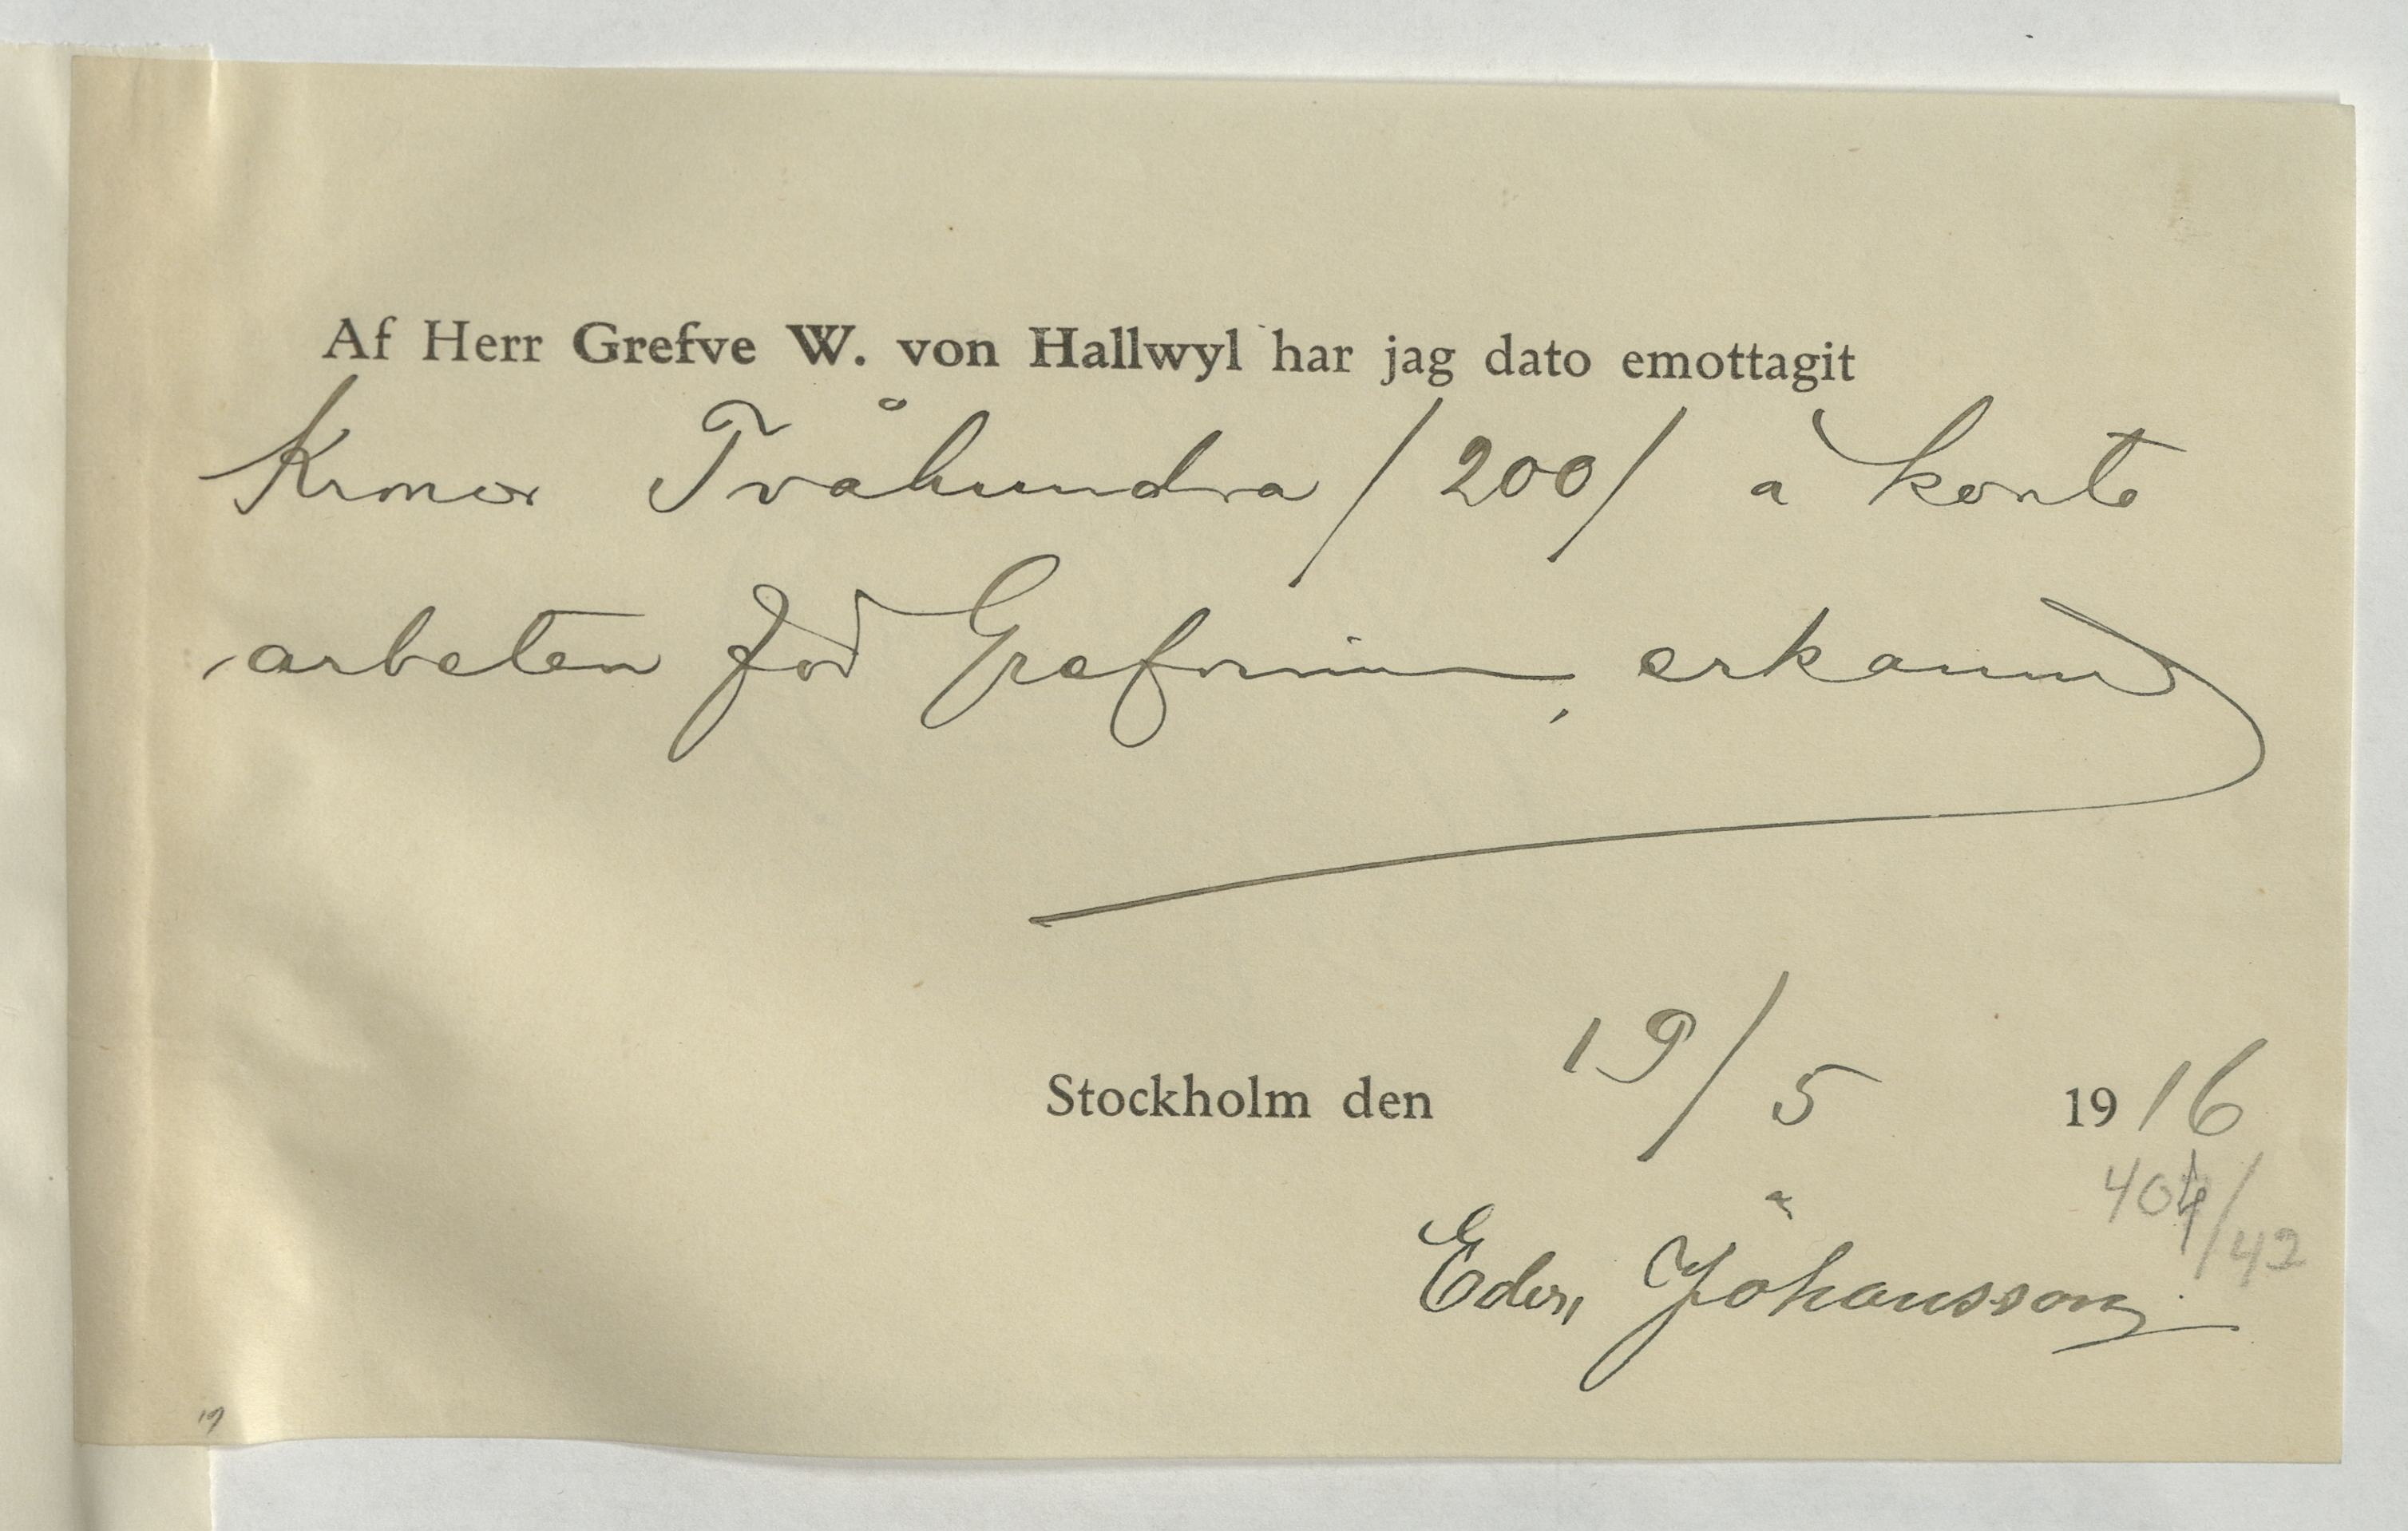 Af Herr Grefve W. von Hallwyl har jag dato emottagit
Kronor Tvåhundra /200/ à konto
arbeten för Grefvinnan, erkännes
Stockholm den 19/5 1916
404/42
Edv. Johansson